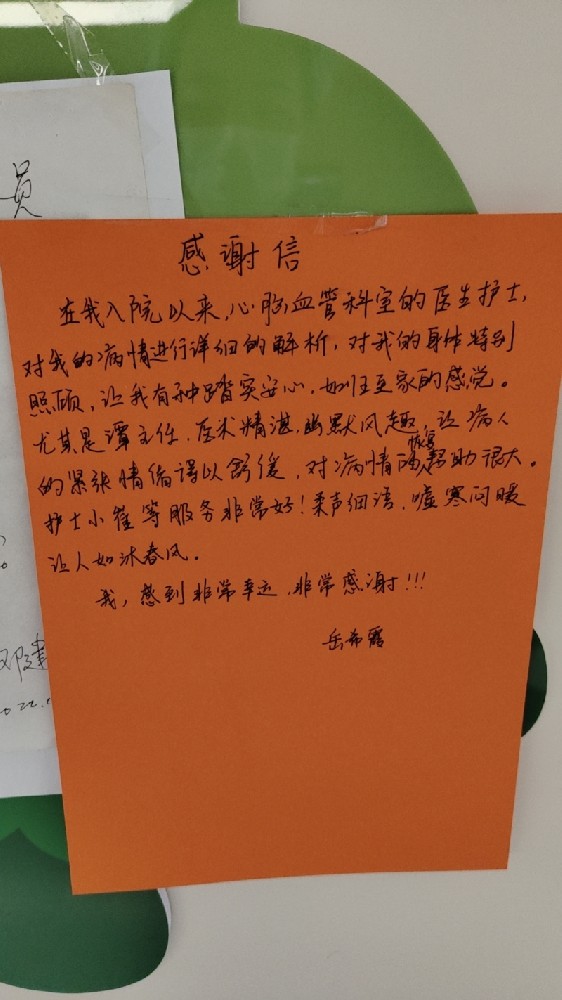 员
感谢信
在我入院以来,心胸血管科室的医生护士,
对我的病情进行详细的解析,对我的身体特别
照顾,让我有种踏实安心,如归至家的感觉。
尤其是谭主任,医术精湛,幽默风趣,让病人
的紧张情绪得以舒缓,对病情的恢复帮助很大。
护士小崔等服务非常好!柔声细语,嘘寒问暖
让人如沐春风。
我,感到非常幸运,非常感谢!!!
岳希露